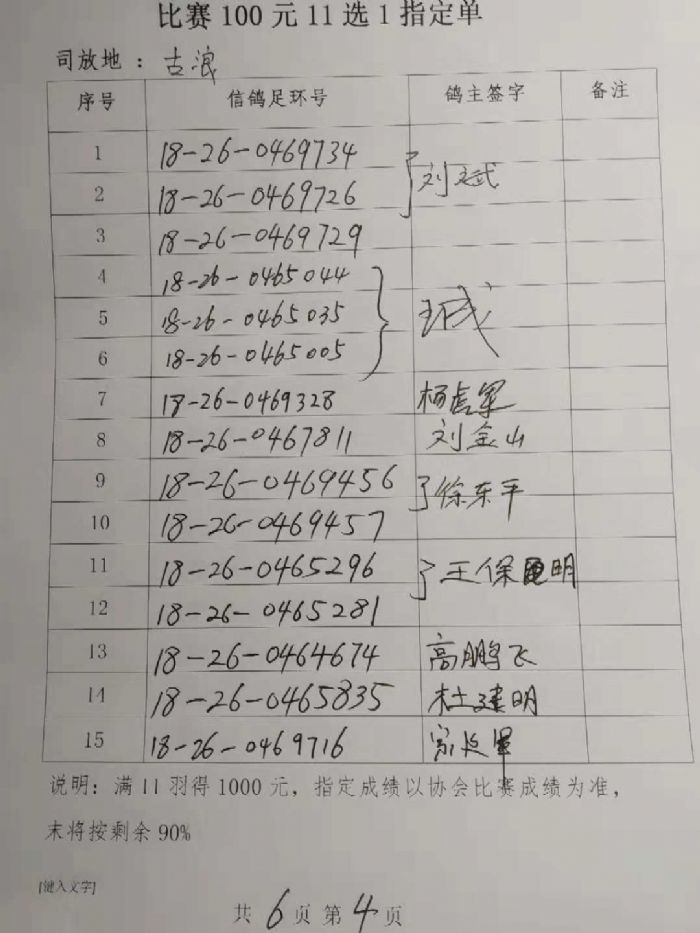 比赛 100 元 11 选 1 指定单
司放地：古浪
序号 信鸽足环号 鸽主签字 备注
1 18-26-0469734 刘斌
2 18-26-0469726
3 18-26-0469729
4 18-26-0465044
5 18-26-0465035
6 18-26-0465005
7 18-26-0469328 杨虎军
8 18-26-0467811 刘金山
9 18-26-0469456 徐东平
10 18-26-0469457
11 18-26-0465296 王保明
12 18-26-0465281
13 18-26-0464674 高鹏飞
14 18-26-0465835 杜建明
15 18-26-0469716
说明：满 11 羽得 1000 元，指定成绩以协会比赛成绩为准，
末将按剩余 90%
[键入文字]
共 6 页 第 4 页